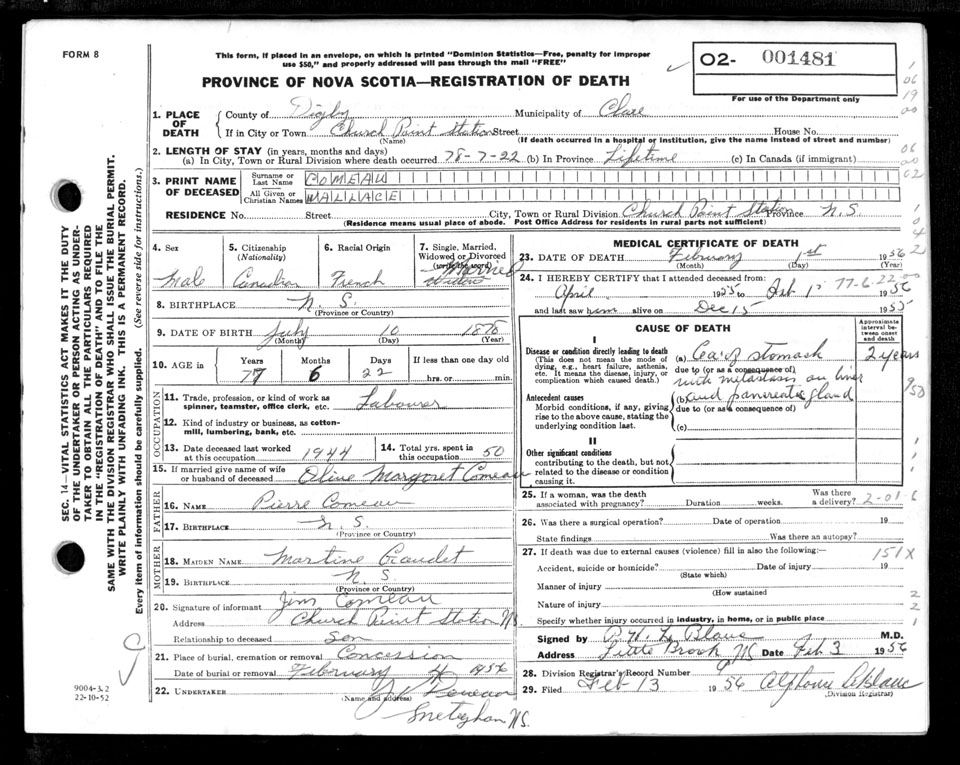 FORM 8
This form, if placed in an envelope, on which is printed "Dominion Statistics—Free, penalty for improper
use $50," and properly addressed will pass through the mail "FREE"
PROVINCE OF NOVA SCOTIA—REGISTRATION OF DEATH
O2- 001481
For use of the Department only
1. PLACE OF DEATH { County of Digby Municipality of Clare
If in City or Town Church Point Station Street House No.
(Name) (If death occurred in a hospital or institution, give the name instead of street and number)
2. LENGTH OF STAY (in years, months and days)
(a) In City, Town or Rural Division where death occurred 78-7-22 (b) In Province Lifetime (c) In Canada (if immigrant)
3. PRINT NAME OF DECEASED { Surname or Last Name COMEAU
All Given or Christian Names WALLACE
RESIDENCE No. Street City, Town or Rural Division Church Point Station Province N.S.
(Residence means usual place of abode. Post Office Address for residents in rural parts not sufficient)
4. Sex Male
5. Citizenship (Nationality) Canadian
6. Racial Origin French
7. Single, Married, Widowed or Divorced (write the word) Married
8. BIRTHPLACE N. S.
(Province or Country)
9. DATE OF BIRTH July 10 1878
(Month) (Day) (Year)
10. AGE in { Years 77 Months 6 Days 22 If less than one day old hrs. or min.
OCCUPATION
11. Trade, profession, or kind of work as spinner, teamster, office clerk, etc. Labourer
12. Kind of industry or business, as cotton-mill, lumbering, bank, etc.
13. Date deceased last worked at this occupation 1944
14. Total yrs. spent in this occupation 50
15. If married give name of wife or husband of deceased Oline Margaret Comeau
FATHER
16. NAME Pierre Comeau
17. BIRTHPLACE N. S.
(Province or Country)
MOTHER
18. MAIDEN NAME Martine Gaudet
19. BIRTHPLACE N. S.
(Province or Country)
20. Signature of informant Jim Comeau
Address Church Point Station NS
Relationship to deceased Son
21. Place of burial, cremation or removal Concession
Date of burial or removal February 4 1956
22. UNDERTAKER
(Name and Address)
Meteghan N.S.
MEDICAL CERTIFICATE OF DEATH
23. DATE OF DEATH February 1st 1956
(Month) (Day) (Year)
24. I HEREBY CERTIFY that I attended deceased from:
April 1955 to Feb 1st 1956
77-6-22-00
and last saw him alive on Dec 15 1955
CAUSE OF DEATH
Approximate interval between onset and death
I
Disease or condition directly leading to death
(This does not mean the mode of dying, e.g., heart failure, asthenia, etc. It means the disease, injury, or complication which caused death.)
(a) Ca. of stomach 2 years
due to (or as a consequence of)
with metastasis on liver
Antecedent causes
Morbid conditions, if any, giving rise to the above cause, stating the underlying condition last.
(b) and pancreatic gland
due to (or as a consequence of)
(c)
II
Other significant conditions
contributing to the death, but not related to the disease or condition causing it.
25. If a woman, was the death associated with pregnancy? Duration weeks. Was there a delivery? 2-01-6
26. Was there a surgical operation? Date of operation 19
State findings Was there an autopsy?
27. If death was due to external causes (violence) fill in also the following:— 151X
Accident, suicide or homicide? Date of injury 19
(State which)
Manner of injury
(How sustained
Nature of injury
Specify whether injury occurred in industry, in home, or in public place
Signed by P.H. L Blanc M.D.
Address Little Brook, NS Date Feb 3 1956
28. Division Registrar's Record Number
29. Filed Feb 13 1956 Alphonse LeBlanc
(Division Registrar)
9004-3.2
22-10-52
SEC. 14—VITAL STATISTICS ACT MAKES IT THE DUTY
OF THE UNDERTAKER OR PERSON ACTING AS UNDER-
TAKER TO OBTAIN ALL THE PARTICULARS REQUIRED
IN THE "REGISTRATION OF DEATH" AND TO FILE THE
SAME WITH THE DIVISION REGISTRAR WHO SHALL ISSUE THE BURIAL PERMIT.
WRITE PLAINLY WITH UNFADING INK. THIS IS A PERMANENT RECORD.
Every item of information should be carefully supplied. (See reverse side for instructions.)